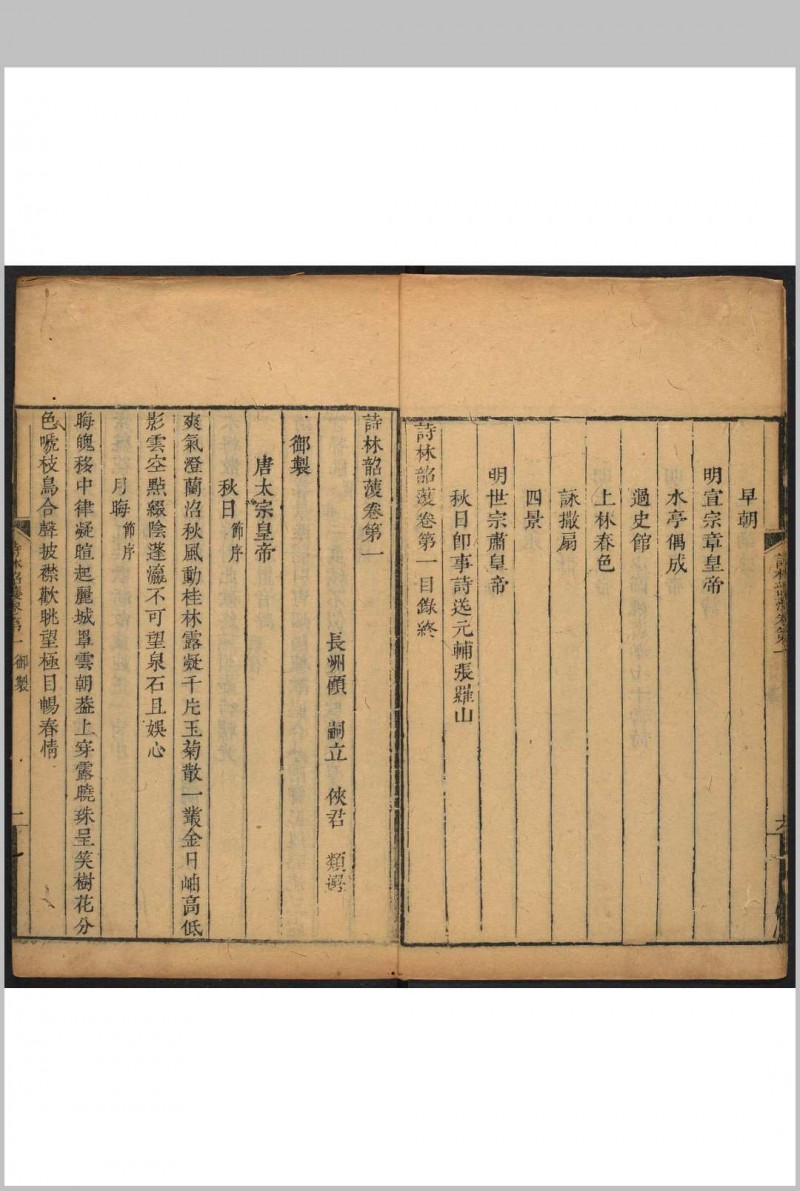 早朝
明宣宗章皇帝
水亭偶成
過史館
上林春色
詠撒扇
四景
明世宗肅皇帝
秋日卽事詩送元輔張羅山
詩林韶濩卷第一目錄終
詩林韶濩卷第一
長洲顧 嗣立 俠君 類選
御製
唐太宗皇帝
秋日 節序
爽氣澄蘭沼秋風動桂林露凝千片玉菊散一叢金日岫高低
影雲空點綴陰蓬瀛不可望泉石且娛心
月晦 節序
晦魄移中律凝暄起麗城罩雲朝葢上穿露曉珠呈笑樹花分
色嗁枝鳥合聲披襟歡眺望極目暢春情
詩林韶濩卷第一 御製 一